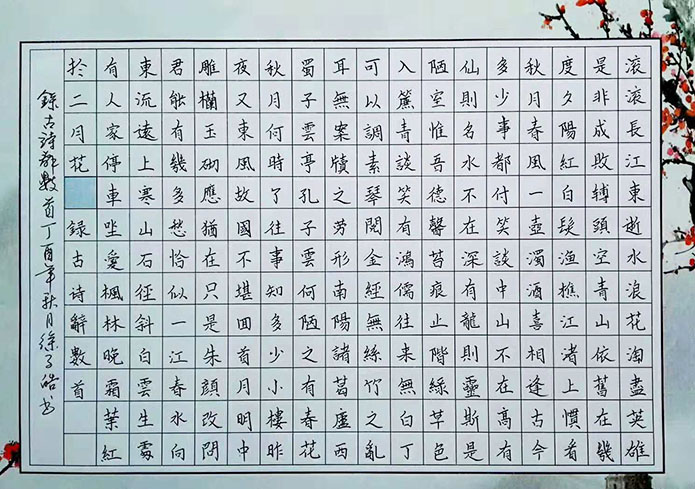 滚滚長江東逝水浪花淘盡英雄
是非成敗轉頭空青山依舊在幾
度夕陽紅白髮漁樵江渚上慣看
秋月春風一壺濁酒喜相逢古今
多少事都付笑談中山不在高有
仙則名水不在深有龍則靈斯是
陋室惟吾德馨苔痕止階綠草色
入簾青談笑有鴻儒往来無白丁
可以調素琴閱金經無絲竹之亂
耳無案牘之勞形南陽諸葛廬西
蜀子雲亭孔子雲何陋之有春花
秋月何時了往事知多少小樓昨
夜又東風故國不堪回首月明中
雕欄玉砌應猶在只是朱顏改問
君能有幾多愁恰似一江春水向
東流遠上寒山石徑斜白雲生處
有人家停車坐愛楓林晚霜葉紅
於二月花 錄古詩辭數首
錄古詩辭數首丁酉年秋月徐子皓书